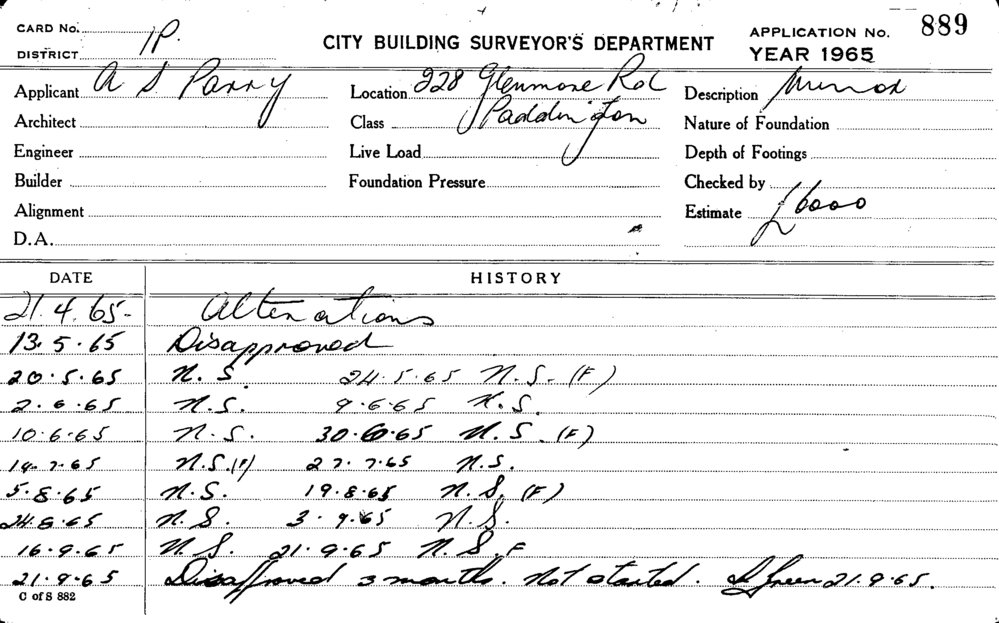 CARD No.
DISTRICT 1P.
CITY BUILDING SURVEYOR'S DEPARTMENT
APPLICATION No. 889
YEAR 1965
Applicant A S Parry
Location 228 Glenmore Rd
Paddington
Description Minor
Architect
Class
Nature of Foundation
Engineer
Live Load
Depth of Footings
Builder
Foundation Pressure
Checked by
Alignment
Estimate £6000
D.A.
DATE HISTORY
21.4.65- Alterations
13.5.65 Disapproved
20.5.65 N.S. 24.5.65 N.S. (F)
2.6.65 N.S. 9.6.65 N.S.
10.6.65 N.S. 30.6.65 N.S. (F)
14.7.65 N.S.(F) 27.7.65 N.S.
5.8.65 N.S. 19.8.65 N.S. (F)
24.8.65 N.S. 3.9.65 N.S.
16.9.65 N.S. 21.9.65 N.S. F
21.9.65 Disapproved 3 months. Not started. Green 21.9.65.
C of S 882